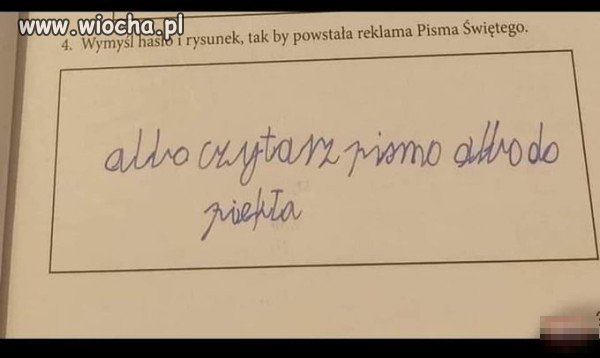 www.wiocha.pl
4. Wymyśl hasło i rysunek, tak by powstała reklama Pisma Świętego.
albo czytasz pismo albo do
piekła